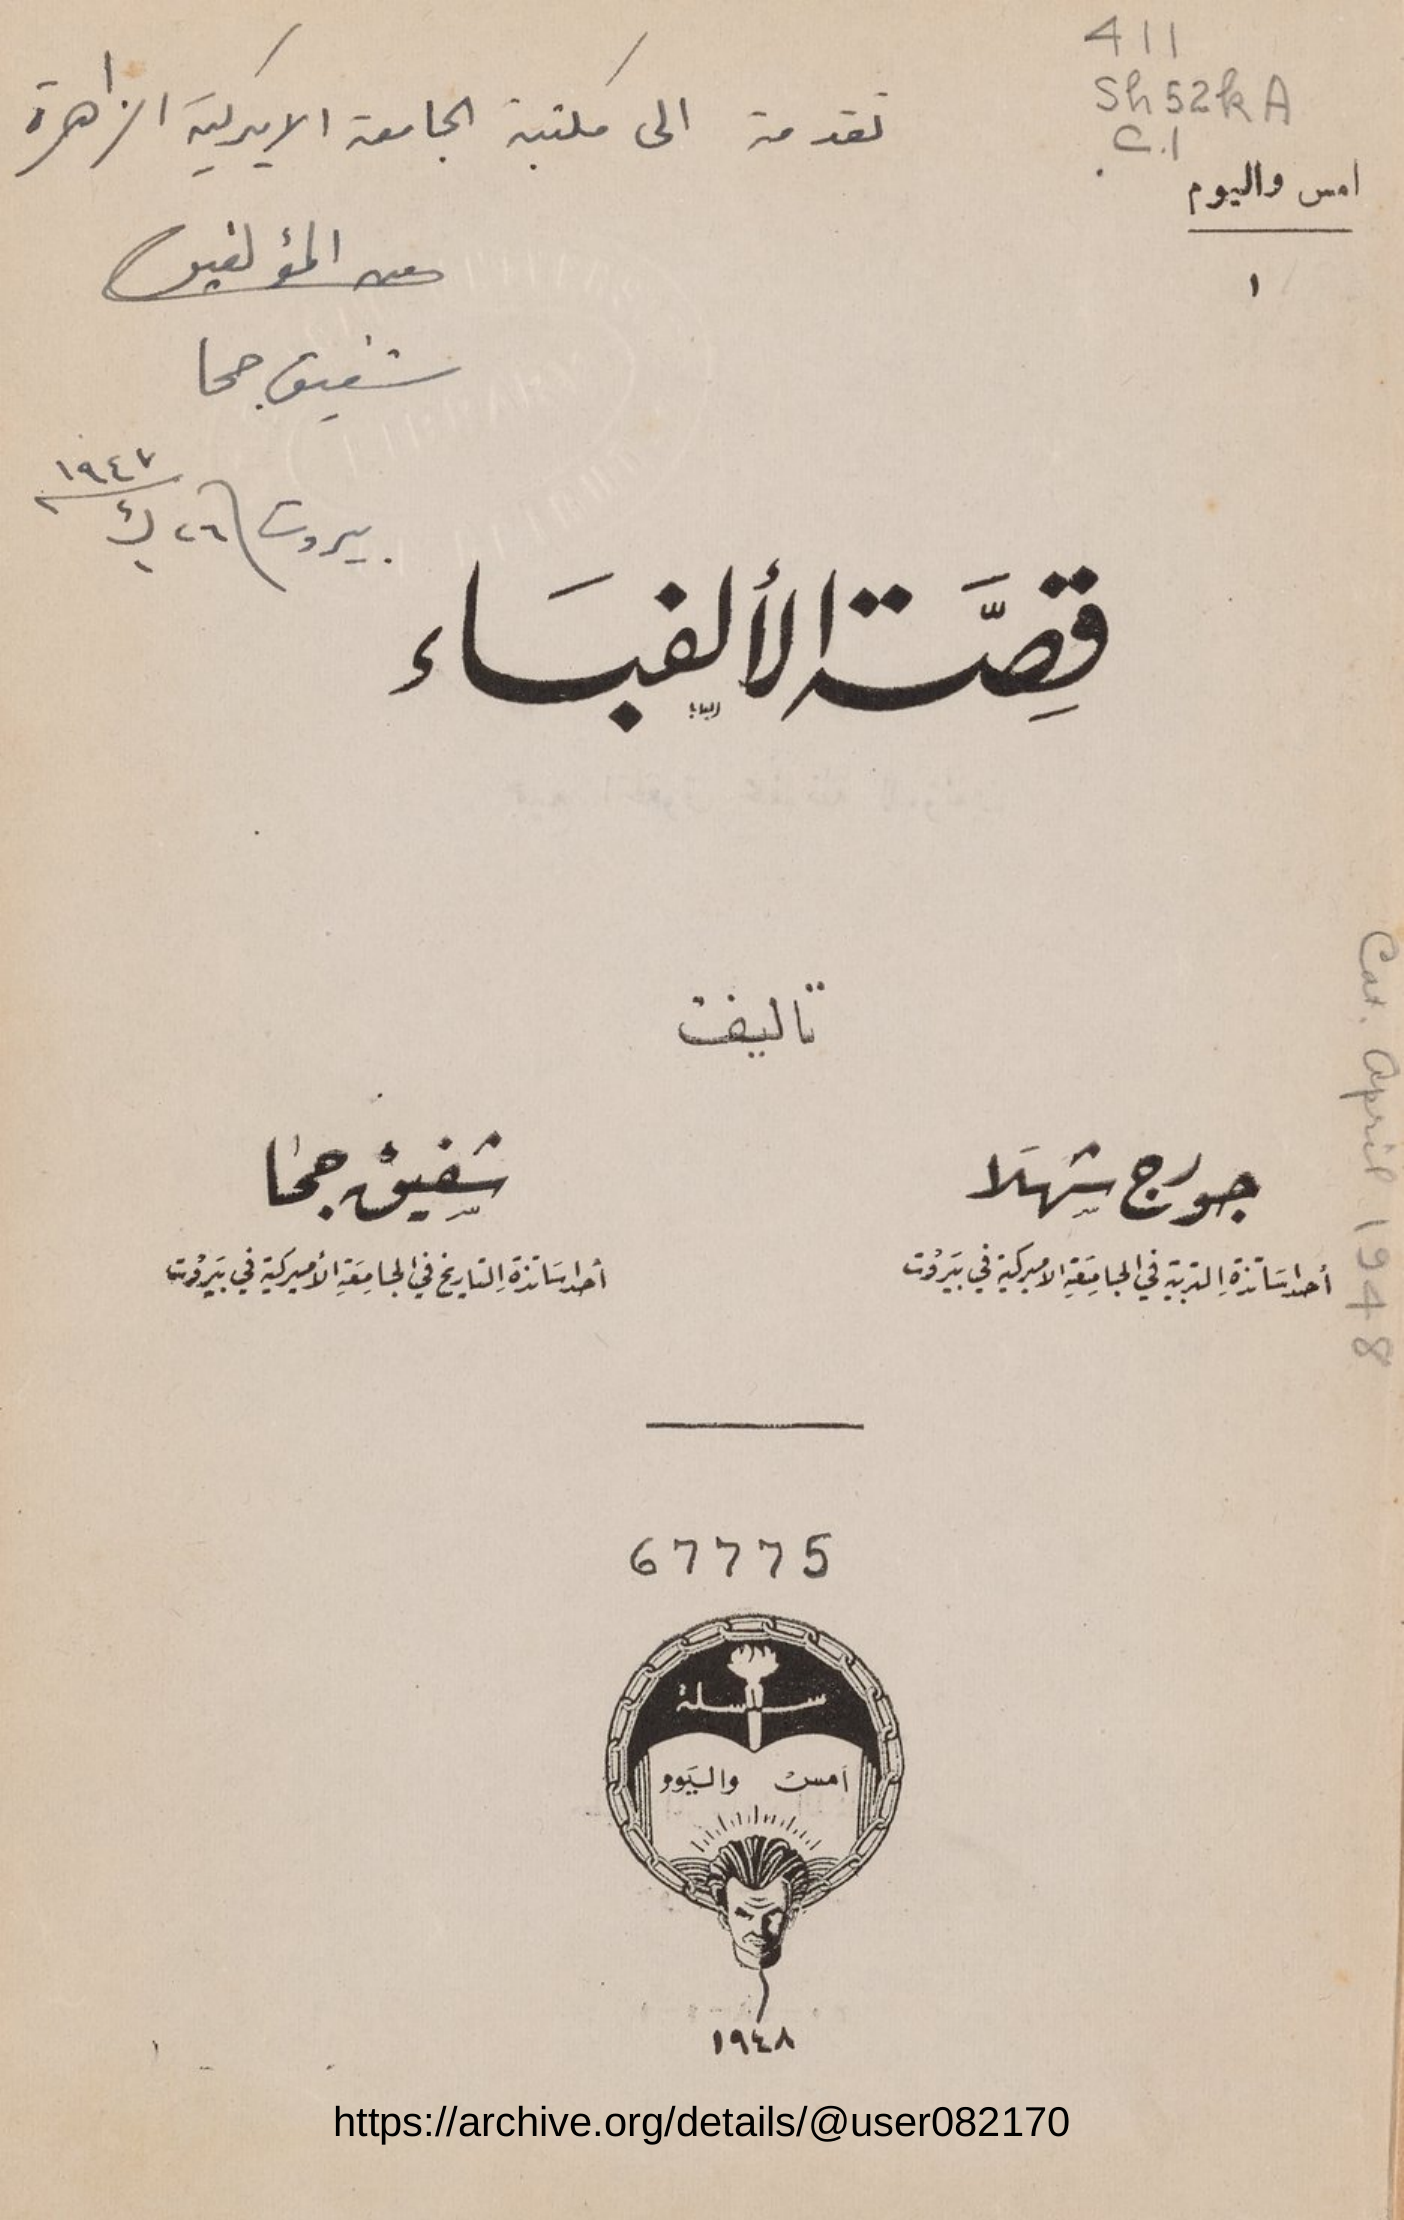 411
Sh52kA
c.1
امس واليوم
١
تقدمة الى مكتبة الجامعة الاميركية الزاهرة
من المؤلفين
شفيق جحا
بيروت ٢٦ ك١ ١٩٤٧
قِصَّة الألفبَاء
تاليف
جورج شهلَا
أحد اسَاتذة التربية في الجامِعَة الاميركية في بَيروُت
شفِيق جحا
أحد اسَاتذة التاريخ في الجامِعَة الأميركية في بَيروُت
Cat. April 1948
67775
سلسلة
أمس واليَوم
١٩٤٨
https://archive.org/details/@user082170